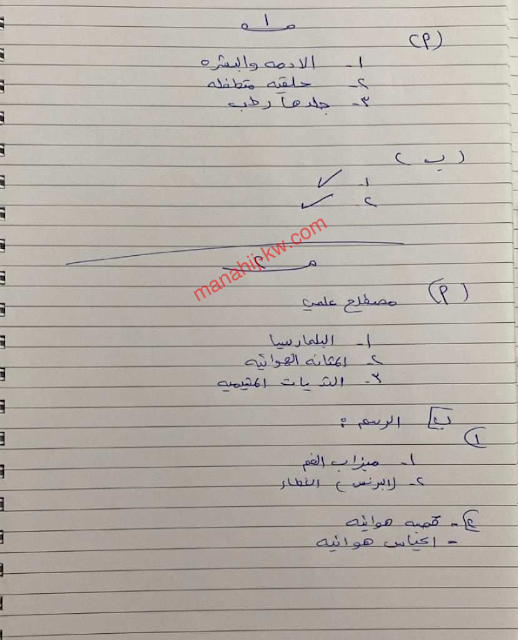 س١
(أ)
١- الادمه والبشره
٢- حلقيه متطفله
٣- جلدها رطب
(ب)
١- ✓
٢- ✓
س٢
(أ) مصطلح علمي
١- البلهارسيا
٢- المثانه الهوائيه
٣- الثدييات المشيميه
ب) الرسم :
١)
١- ميزاب الفم
٢- (البرنس) الغطاء
٢) - قصبه هوائيه
- اكياس هوائيه
manahijkw.com